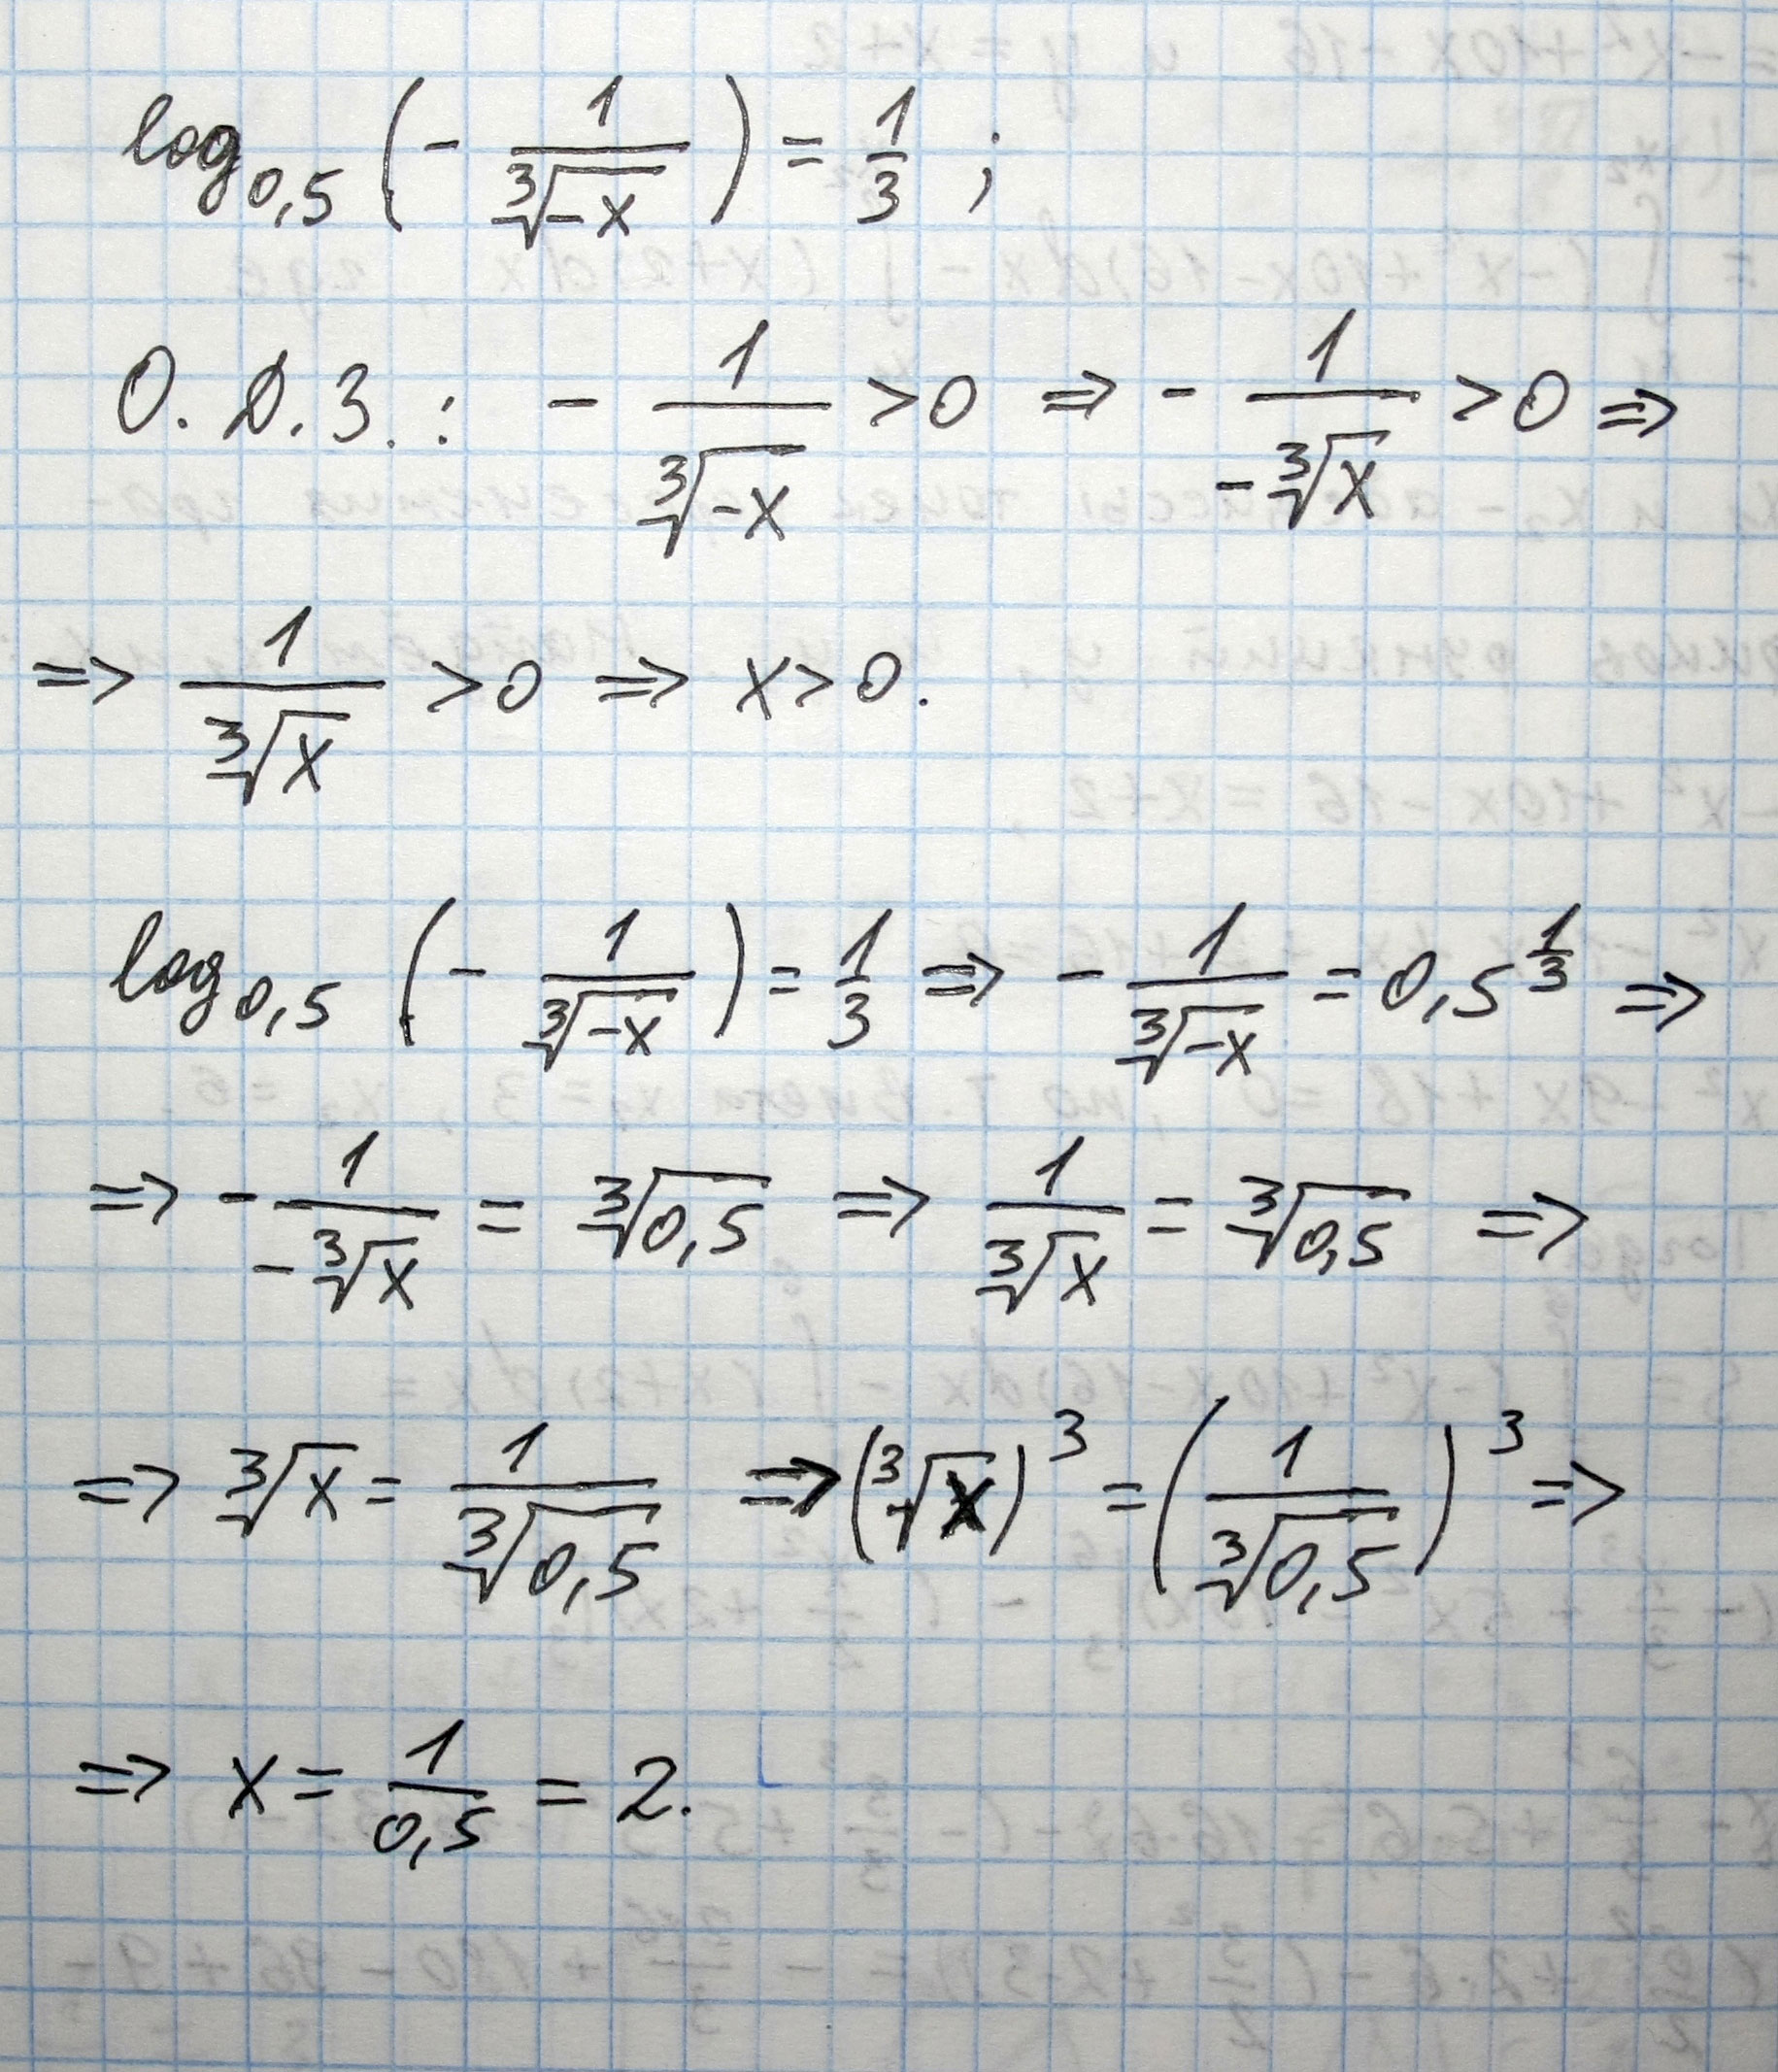 log₀,₅ (- 1/∛(-x)) = 1/3 ;
О.Д.З.: - 1/∛(-x) > 0 => - 1/(-∛x) > 0 =>
=> 1/∛x > 0 => x > 0.
log₀,₅ (- 1/∛(-x)) = 1/3 => - 1/∛(-x) = 0,5^(1/3) =>
=> - 1/(-∛x) = ∛(0,5) => 1/∛x = ∛(0,5) =>
=> ∛x = 1/∛(0,5) => (∛x)³ = (1/∛(0,5))³ =>
=> x = 1/0,5 = 2.